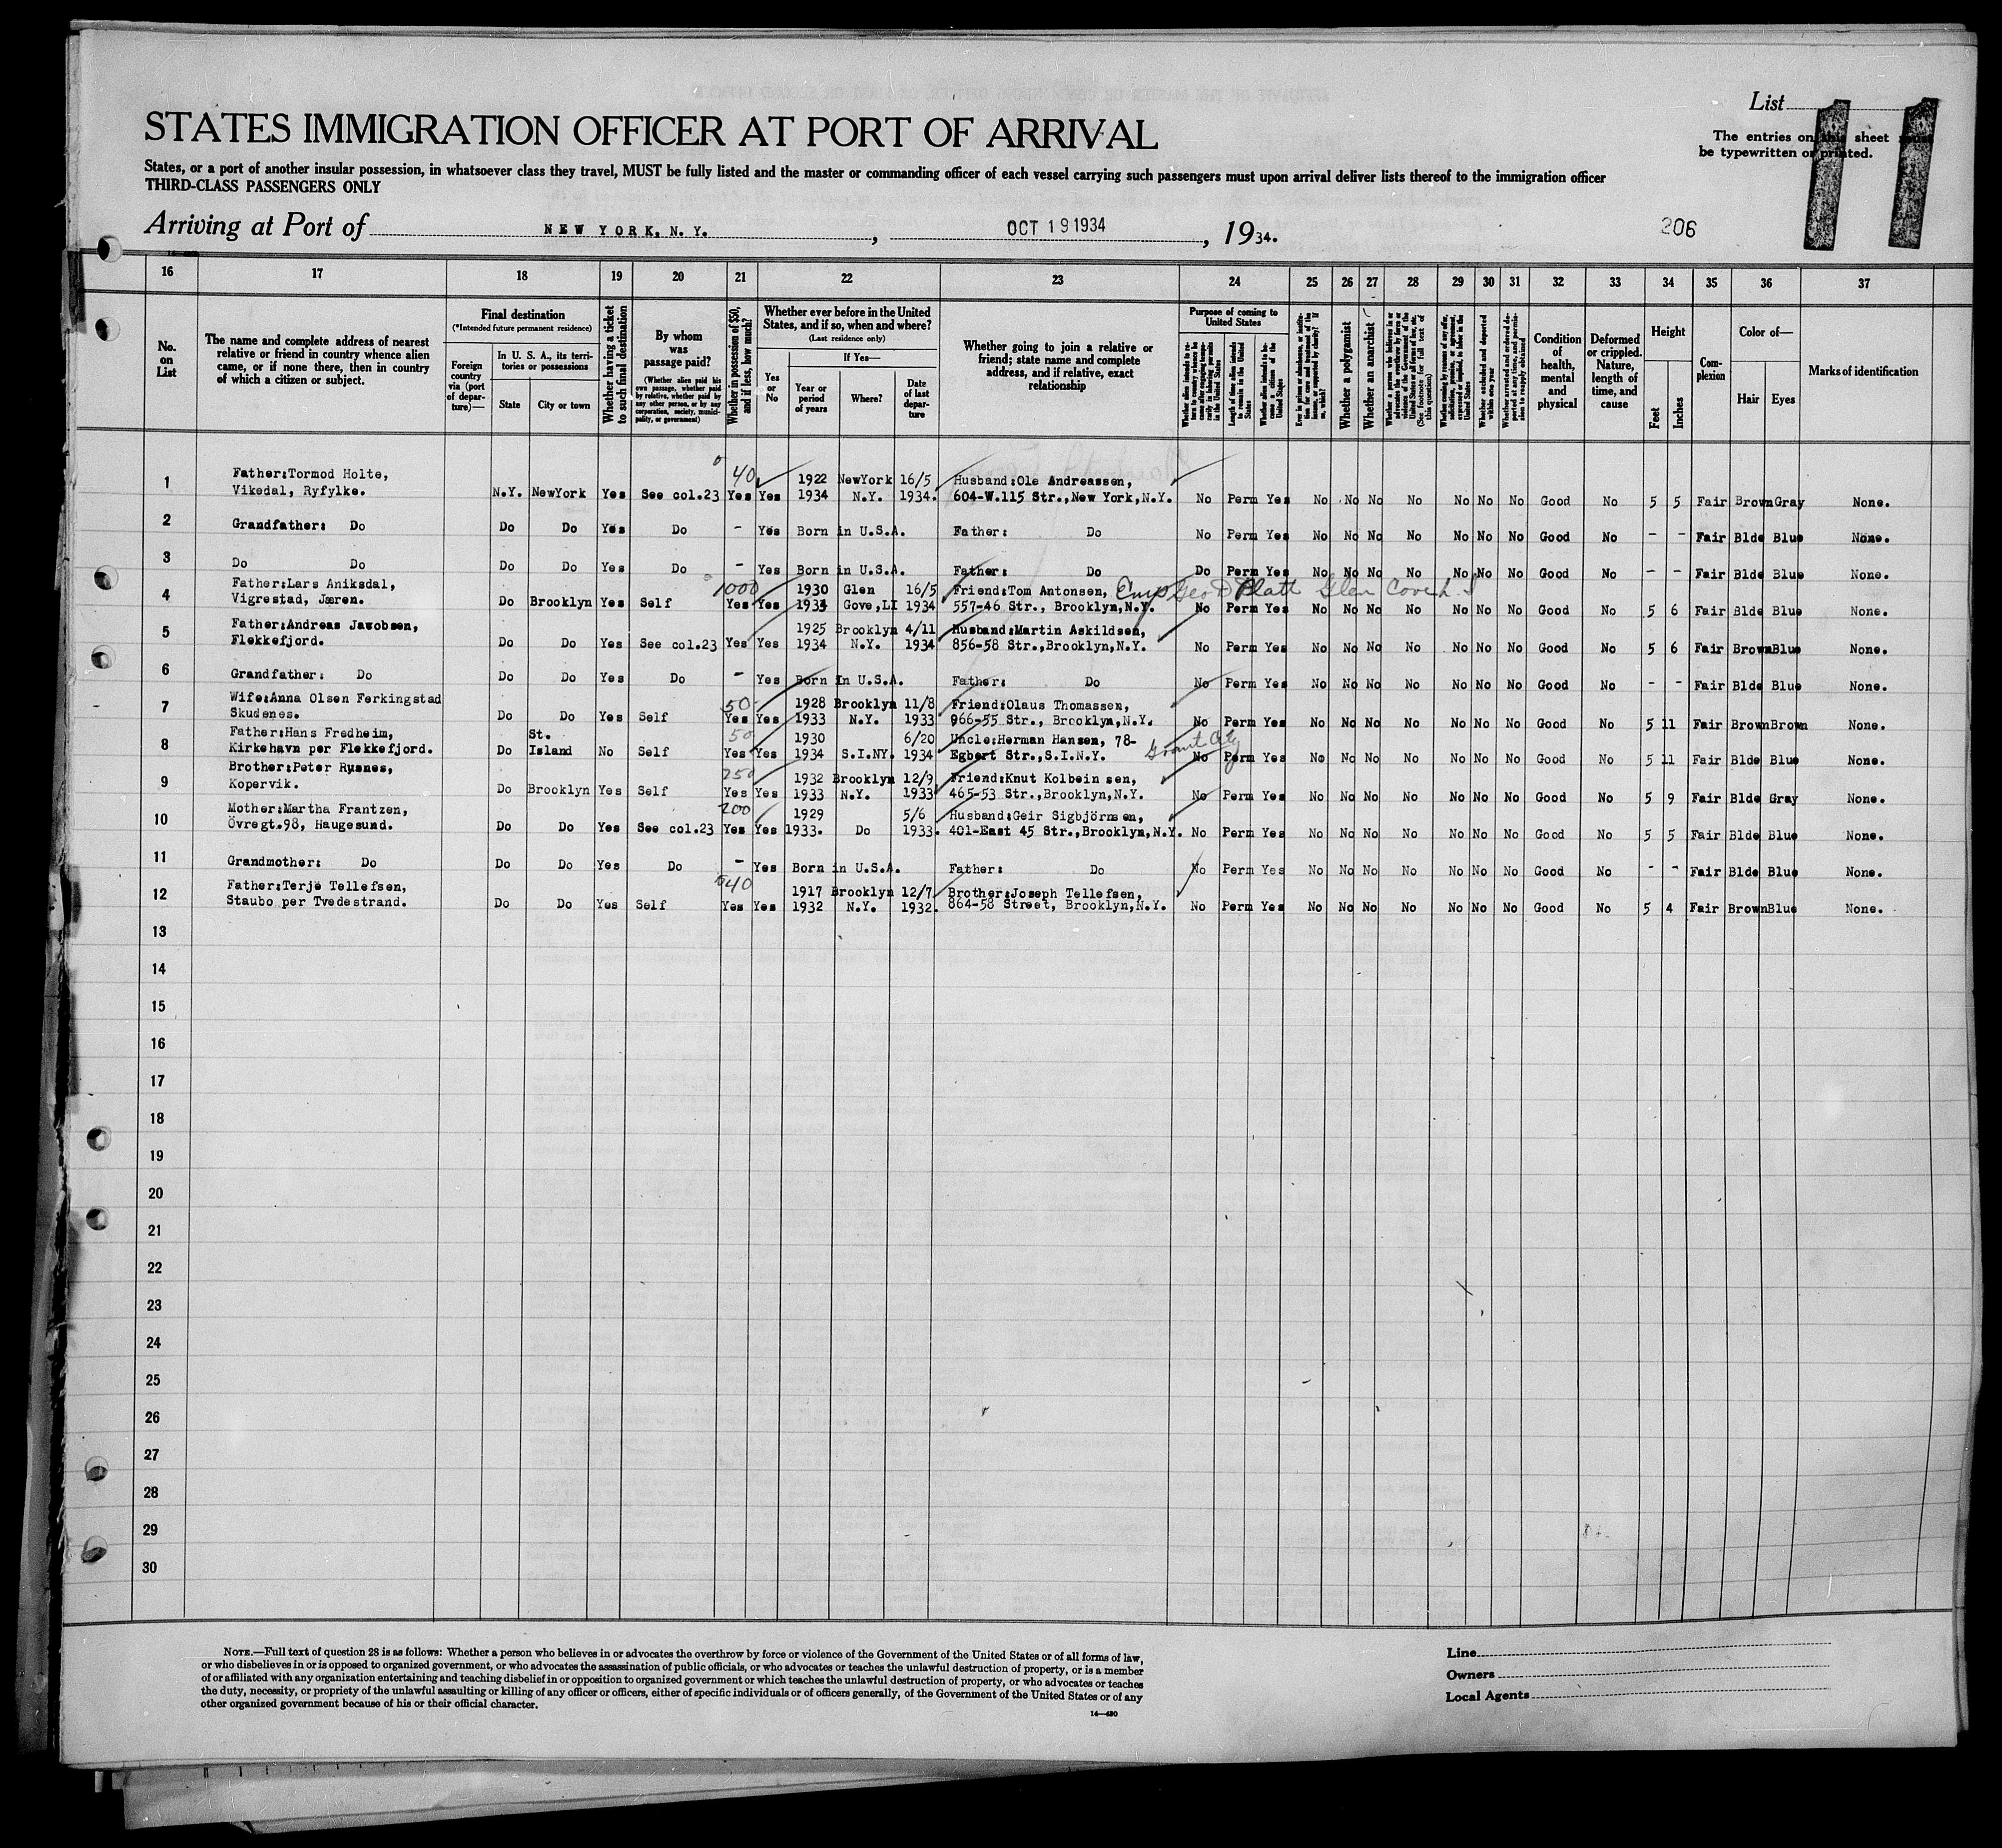 List
11
STATES IMMIGRATION OFFICER AT PORT OF ARRIVAL
The entries on this sheet must
be typewritten or printed.
States, or a port of another insular possession, in whatsoever class they travel, MUST be fully listed and the master or commanding officer of each vessel carrying such passengers must upon arrival deliver lists thereof to the immigration officer
THIRD-CLASS PASSENGERS ONLY
Arriving at Port of NEW YORK, N. Y., OCT 19 1934, 1934.
206
16 17 18 19 20 21 22 23 24 25 26 27 28 29 30 31 32 33 34 35 36 37
No. on List
The name and complete address of nearest relative or friend in country whence alien came, or if none there, then in country of which a citizen or subject.
Final destination
(*Intended future permanent residence)
Foreign country via (port of departure)—
In U. S. A., its territories or possessions
State
City or town
Whether having a ticket to such final destination
By whom was passage paid?
(Whether alien paid his own passage, whether paid by relative, whether paid by any other person, or by any corporation, society, municipality, or government)
Whether in possession of $50, and if less, how much?
Whether ever before in the United States, and if so, when and where?
(Last residence only)
Yes or No
If Yes—
Year or period of years
Where?
Date of last departure
Whether going to join a relative or friend; state name and complete address, and if relative, exact relationship
Purpose of coming to United States
Whether alien intends to return to country whence he came after engaging temporarily in laboring pursuits in the United States
Length of time alien intends to remain in the United States
Whether alien intends to become a citizen of the United States
Ever in prison or almshouse, or institution for care and treatment of the insane, or supported by charity? If so, which?
Whether a polygamist
Whether an anarchist
Whether a person who believes in or advocates the overthrow by force or violence of the Government of the United States or all forms of law, etc. (See footnote for full text of this question)
Whether coming by reason of any offer, solicitation, promise, or agreement, expressed or implied, to labor in the United States
Whether excluded and deported within one year
Whether arrested and ordered deported at any time, and permission to reapply obtained
Condition of health, mental and physical
Deformed or crippled. Nature, length of time, and cause
Height
Feet
Inches
Complexion
Color of—
Hair
Eyes
Marks of identification
40
Father:Tormod Holte, 1922 NewYork 16/5 Husband:Ole Andreassen,
1 Vikedal, Ryfylke. N.Y. NewYork Yes See col.23 Yes Yes 1934 N.Y. 1934. 604-W.115 Str.,New York,N.Y. No Perm Yes No No No No No No No Good No 5 5 Fair Brown Gray None.
2 Grandfather: Do Do Do Yes Do - Yes Born in U.S.A. Father: Do No Perm Yes No No No No No No No Good No - - Fair Blde Blue None.
3 Do Do Do Do Yes Do - Yes Born in U.S.A. Father: Do Do Perm Yes No No No No No No No Good No - - Fair Blde Blue None.
1000
Father:Lars Aniksdal, 1930 Glen 16/5 Friend:Tom Antonsen, Emp Geo D Platt Glen Cove L.I
4 Vigrestad, Jæren. Do Brooklyn Yes Self Yes Yes 1934 Gove,LI 1934 557-46 Str., Brooklyn,N.Y. No Perm Yes No No No No No No No Good No 5 6 Fair Blde Blue None.
Father:Andreas Jawobsen, 1925 Brooklyn 4/11 Husband:Martin Askildsen,
5 Flekkefjord. Do Do Yes See col.23 Yes Yes 1934 N.Y. 1934 856-58 Str.,Brooklyn,N.Y. No Perm Yes No No No No No No No Good No 5 6 Fair Brown Blue None.
6 Grandfather: Do Do Do Yes Do - Yes Born in U.S.A. Father: Do No Perm Yes No No No No No No No Good No - - Fair Blde Blue None.
50
Wife:Anna Olsen Ferkingstad 1928 Brooklyn 11/8 Friend:Olaus Thomassen,
7 Skudenes. Do Do Yes Self Yes Yes 1933 N.Y. 1933 966-55 Str., Brooklyn,N.Y. No Perm Yes No No No No No No No Good No 5 11 Fair Brown Brown None.
50
Father:Hans Fredheim, St. 1930 6/20 Uncle:Herman Hansen, 78- Grant City
8 Kirkehavn per Flekkefjord. Do Island No Self Yes Yes 1934 S.I.NY. 1934 Egbert Str.,S.I.N.Y. No Perm Yes No No No No No No No Good No 5 11 Fair Blde Blue None.
250
Brother:Peter Rysnes, 1932 Brooklyn 12/9 Friend:Knut Kolbein sen,
9 Kopervik. Do Brooklyn Yes Self Yes Yes 1933 N.Y. 1933 465-53 Str.,Brooklyn,N.Y. No Perm Yes No No No No No No No Good No 5 9 Fair Blde Gray None.
200
Mother:Martha Frantzen, 1929 5/6 Husband:Geir Sigbjörnsen,
10 Övregt.98, Haugesund. Do Do Yes See col.23 Yes Yes 1933. Do 1933. 401-East 45 Str.,Brooklyn,N.Y. No Perm Yes No No No No No No No Good No 5 5 Fair Blde Blue None.
11 Grandmother: Do Do Do Yes Do - Yes Born in U.S.A. Father: Do No Perm Yes No No No No No No No Good No - - Fair Blde Blue None.
40
Father:Terje Tellefsen, 1917 Brooklyn 12/7 Brother:Joseph Tellefsen,
12 Staubo per Tvedestrand. Do Do Yes Self Yes Yes 1932 N.Y. 1932. 864-58 Street, Brooklyn,N.Y. No Perm Yes No No No No No No No Good No 5 4 Fair Brown Blue None.
13
14
15
16
17
18
19
20
21
22
23
24
25
26
27
28
29
30
NOTE.—Full text of question 28 is as follows: Whether a person who believes in or advocates the overthrow by force or violence of the Government of the United States or of all forms of law,
or who disbelieves in or is opposed to organized government, or who advocates the assassination of public officials, or who advocates or teaches the unlawful destruction of property, or is a member
of or affiliated with any organization entertaining and teaching disbelief in or opposition to organized government or which teaches the unlawful destruction of property, or who advocates or teaches
the duty, necessity, or propriety of the unlawful assaulting or killing of any officer or officers, either of specific individuals or of officers generally, of the Government of the United States or of any
other organized government because of his or their official character.
14—430
Line
Owners
Local Agents